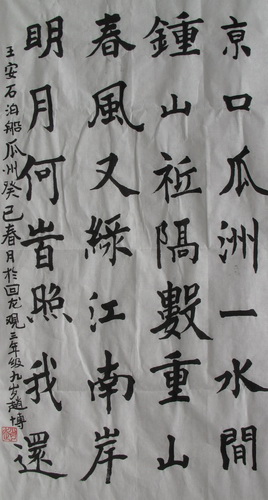 京口瓜洲一水間
鍾山祗隔數重山
春風又綠江南岸
明月何旹照我還
王安石泊船瓜州癸巳春月於回龙观三年级九岁趙博